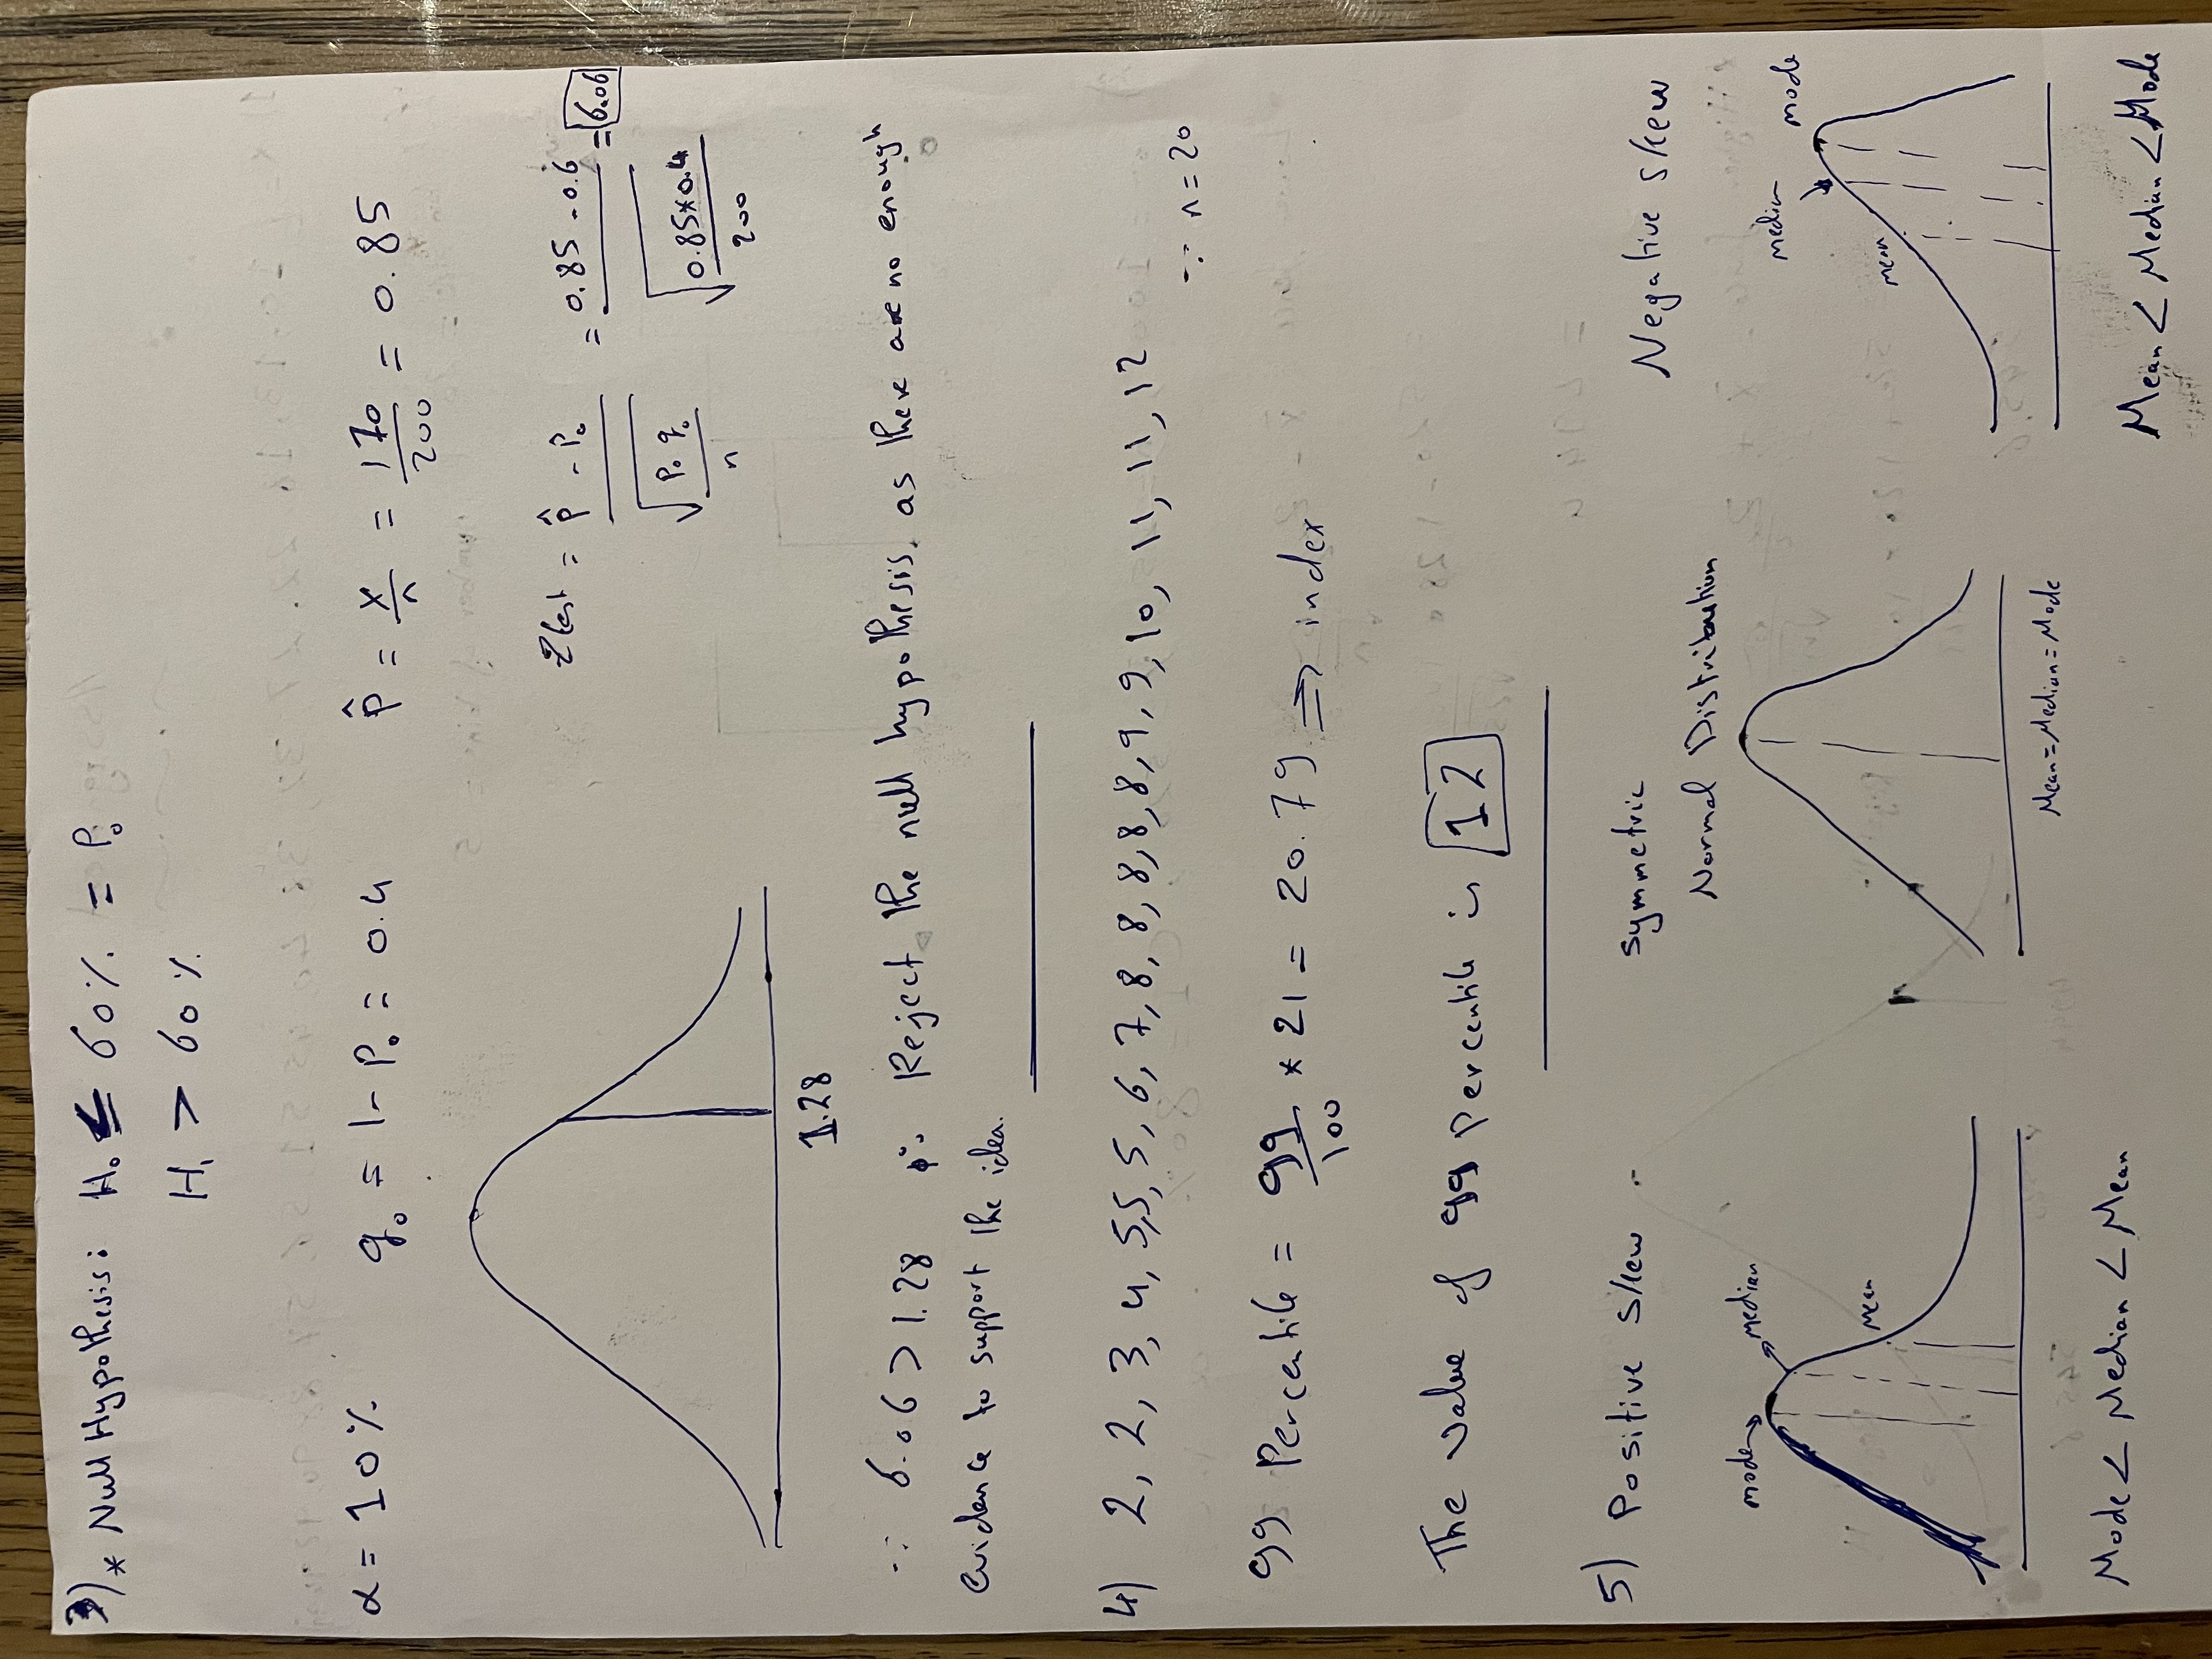 3) * Null Hypothesis: H₀ ≤ 60% = P₀
H₁ > 60%
α = 10% q₀ = 1 - P₀ = 0.4 p̂ = x/n = 170/200 = 0.85
Ztest = (p̂ - P₀) / √(P₀ q₀ / n) = (0.85 - 0.6) / √(0.85*0.4 / 200) = 6.06
1.28
∵ 6.06 > 1.28 ∴ Reject the null hypothesis. as there are no enough
evidence to support the idea.
4) 2, 2, 3, 4, 5,5, 5, 6, 7, 8, 8, 8, 8, 8, 9, 9, 10, 11, 11, 12
∵ n = 20
99 Percentile = 99/100 * 21 = 20.79 ⇒ index
The value of 99 percentile is 12
5) Positive skew symmetric Negative skew
Normal Distribution
mode median
mean
median mode
mean
Mean = Median = Mode
Mode < Median < Mean
Mean < Median < Mode